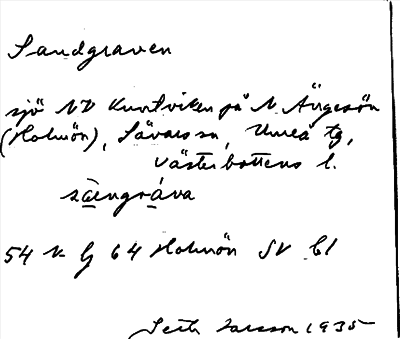 Sandgraven
sjö NV Kvarkviken på N. Ängesön
(Holmön), Sävars sn, Umeå tg,
Västerbottens l.
sæengráva
54 N g 64 Holmön SV bl
Seth Larsson 1935